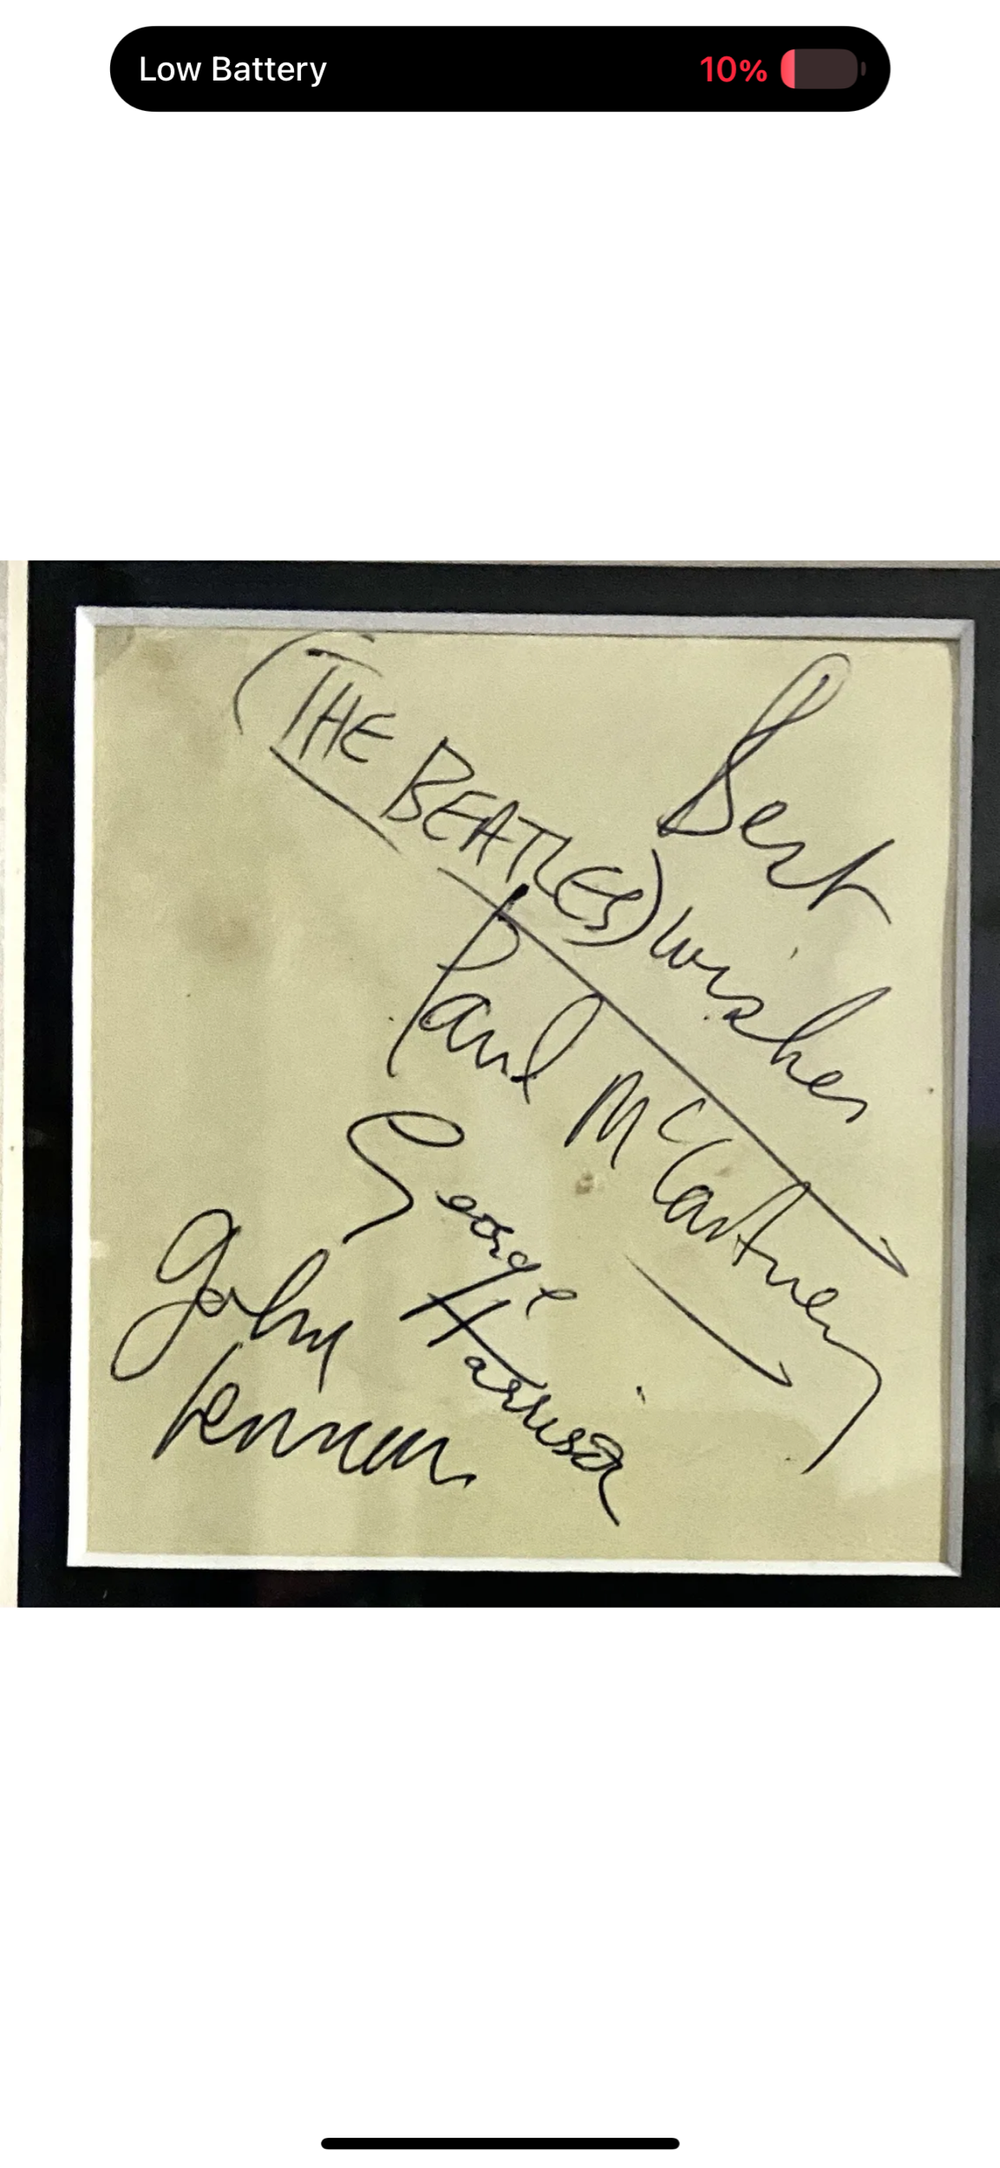 Low Battery 10%
(THE BEATLES)
Best
wishes
Paul McCartney
George
Harrison
John
Lennon